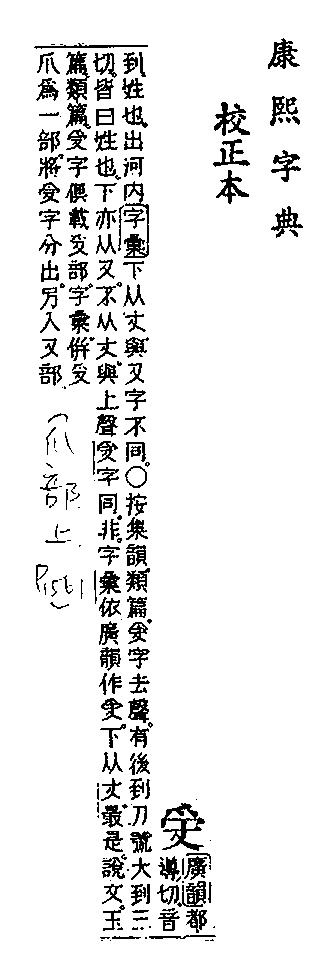 康熙字典
校正本
廣韻都
導切音
到姓也出河內字彙下从丈與又字不同○按集韻類篇字去聲有後到刀號大到三
切皆曰姓也下亦从又不从丈與上聲受字同非字彙依廣韻作下从丈最是說文玉
篇類篇受字俱載部字彙併
爪為一部將受字分出另入又部
(爪部上